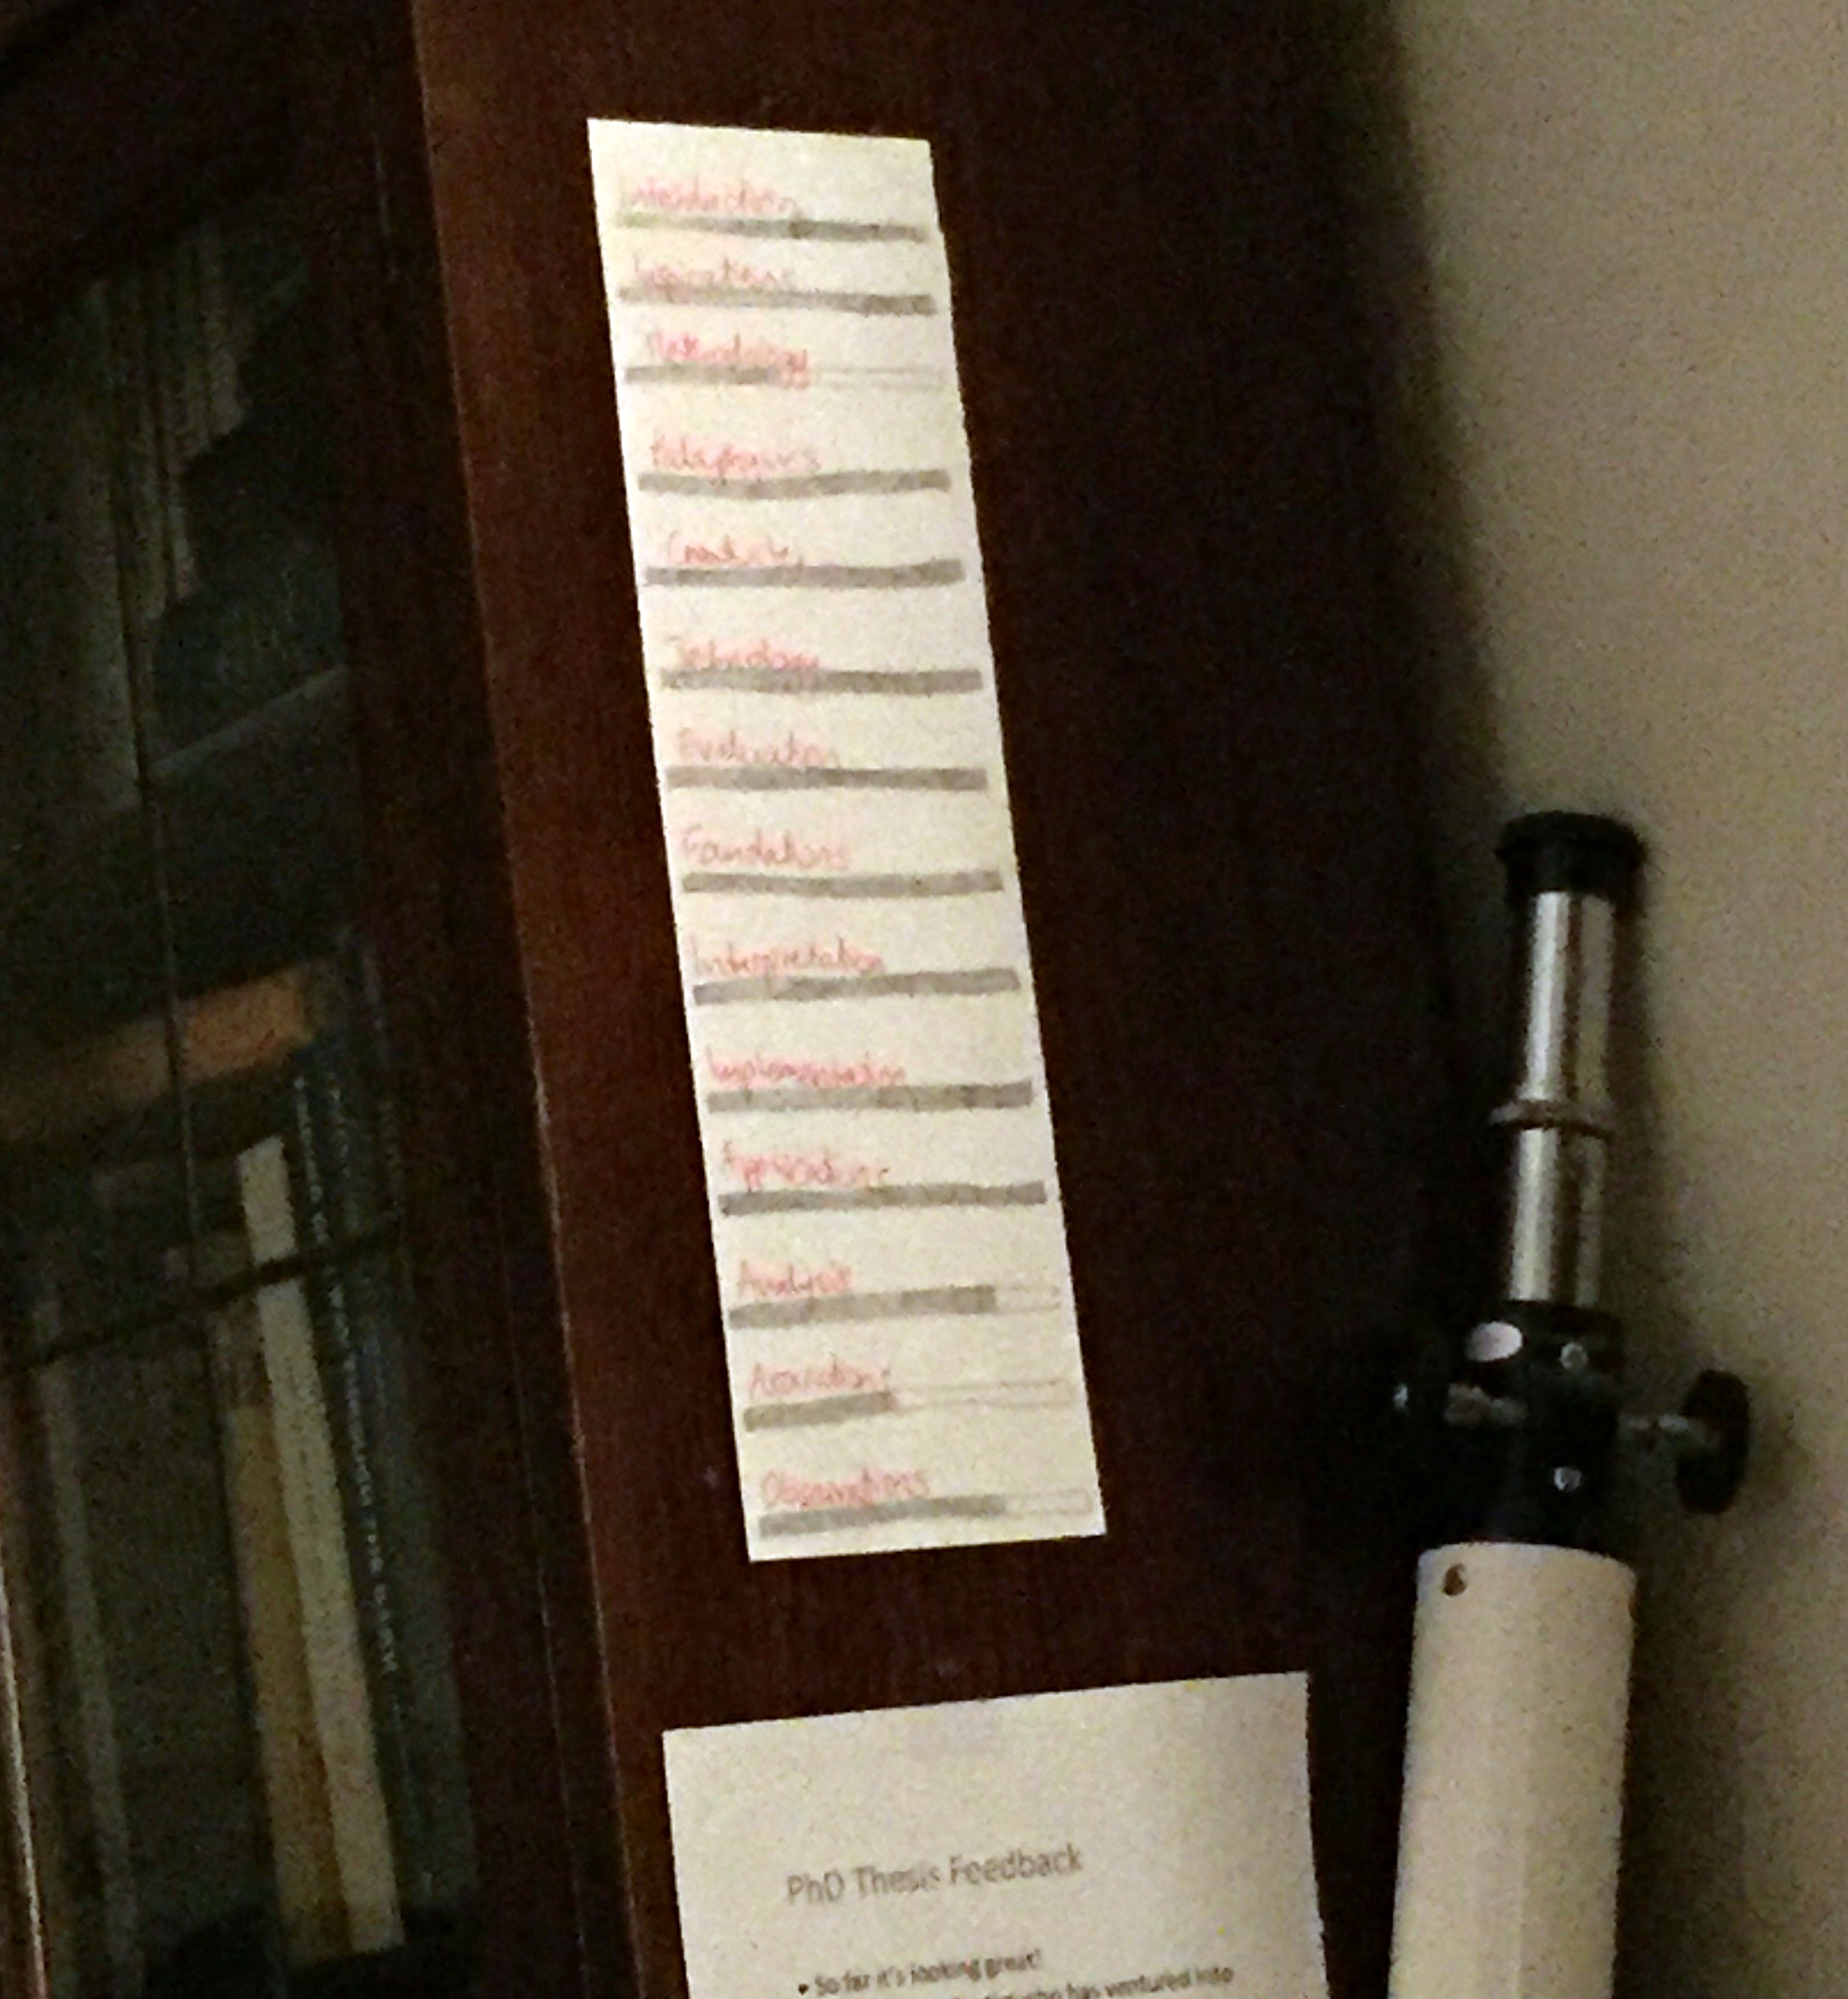 Introduction
Inspirations
Methodology
Creativity
Technology
Evaluation
Foundations
Interpretation
Implementation
Approaches
Analysis
Observations
PhD Thesis Feedback
• So far it's looking great!
has ventured into